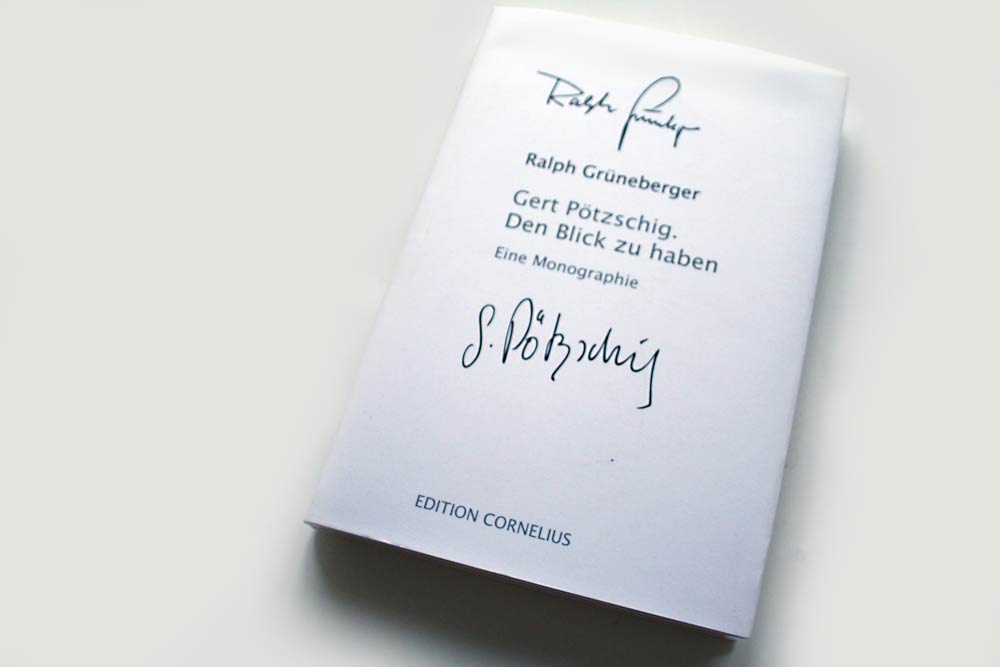 Ralph Grüneberger
Ralph Grüneberger
Gert Pötzschig.
Den Blick zu haben
Eine Monographie
G. Pötzschig
EDITION CORNELIUS